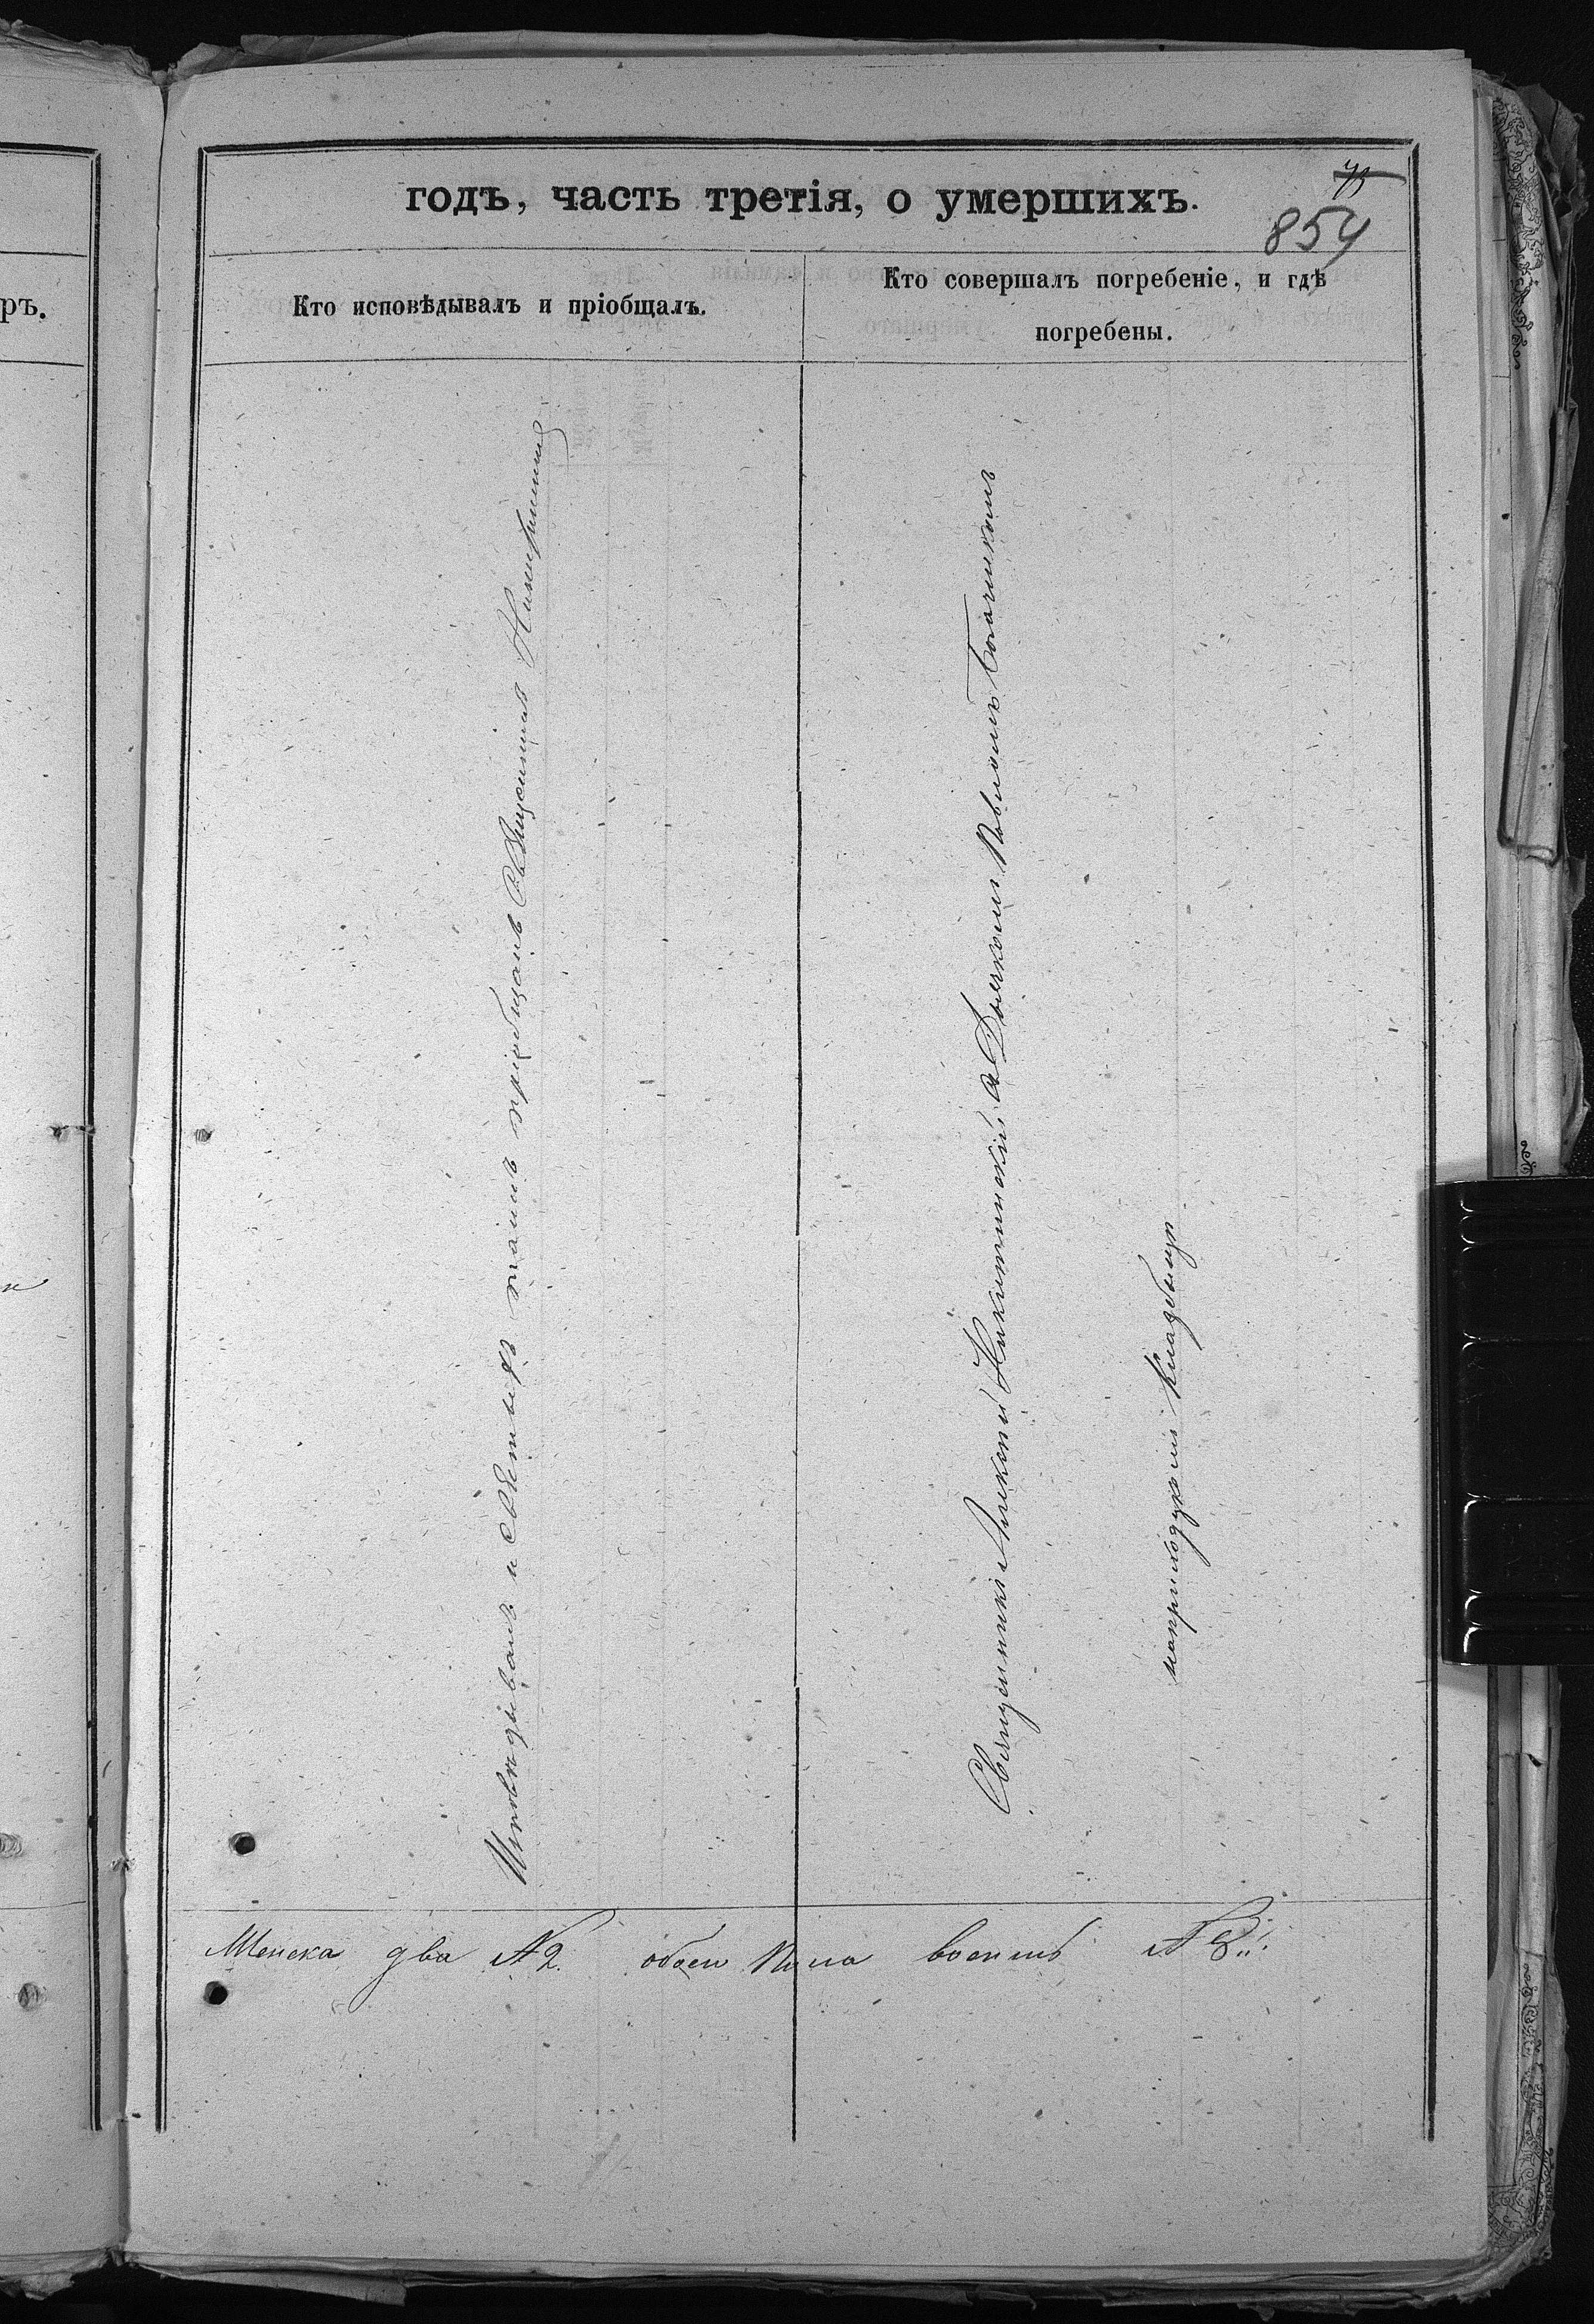 годъ, часть третія, о умершихъ.
854
ръ.
Кто исповѣдывалъ и пріобщалъ.
Кто совершалъ погребеніе, и гдѣ
погребены.
Исповѣдывалъ и Святыхъ таинъ пріобщалъ Священникъ
Священникъ Алексѣй Никитинскій съ Дьячкомъ Павломъ
на приходскомъ кладбищѣ
Женска два № 2. обоего пола восемь № 8.